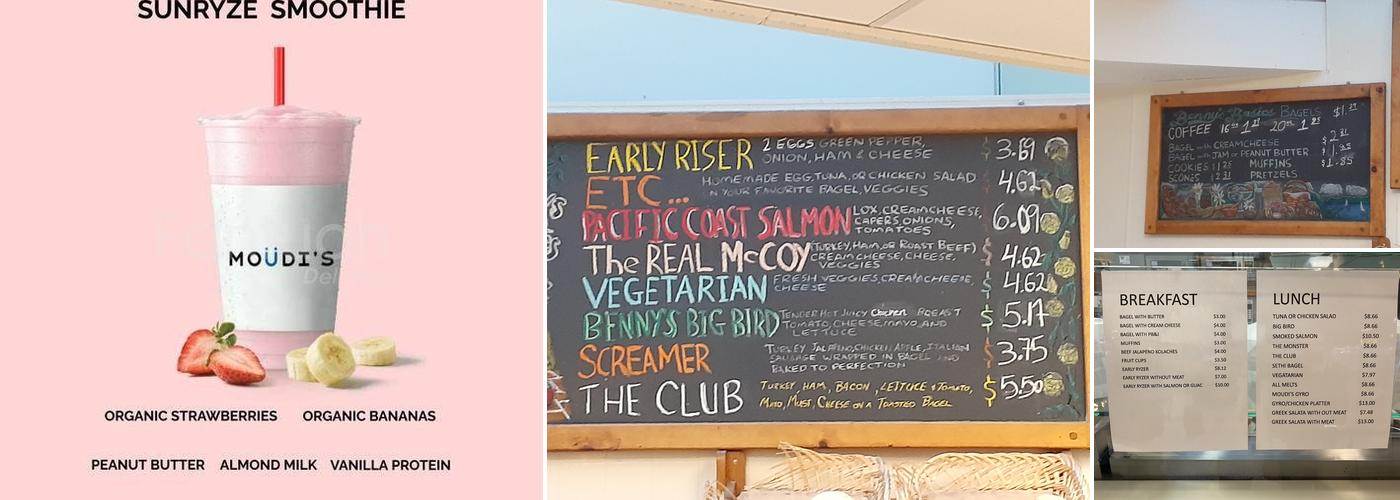 SUNRYZE SMOOTHIE
MOÜDI'S
ORGANIC STRAWBERRIES ORGANIC BANANAS
PEANUT BUTTER ALMOND MILK VANILLA PROTEIN
EARLY RISER 2 EGGS, GREEN PEPPER, 3.89
ONION, HAM & CHEESE
ETC... HOMEMADE EGG, TUNA, OR CHICKEN SALAD 4.62
IN YOUR FAVORITE BAGEL, VEGGIES
PACIFIC COAST SALMON LOX, CREAMCHEESE, 6.09
CAPERS, ONIONS,
TOMATOES
The REAL McCOY (TURKEY, HAM, OR ROAST BEEF) $ 4.62
CREAMCHEESE, CHEESE,
VEGGIES
VEGETARIAN FRESH VEGGIES, CREAMCHEESE, 4.62
CHEESE
BENNY'S BIG BIRD TENDER HOT JUICY Chicken BREAST $ 5.17
TOMATO, CHEESE, MAYO, AND
LETTUCE
SCREAMER TURKEY JALAPENO, CHICKEN APPLE, ITALIAN $ 3.75
SAUSAGE WRAPPED IN BAGEL AND
BAKED TO PERFECTION
THE CLUB TURKEY, HAM, BACON, LETTUCE & TOMATO, $ 5.50
MAYO, MUST, CHEESE ON A TOASTED BAGEL
BAGELS
COFFEE
BAGEL with CREAMCHEESE
BAGEL with JAM or PEANUT BUTTER
COOKIES MUFFINS $1.85
SCONES PRETZELS
BREAKFAST
BAGEL WITH BUTTER $3.00
BAGEL WITH CREAM CHEESE $4.00
BAGEL WITH PB&J $4.00
MUFFINS $3.00
BEEF JALAPENO KOLACHES $4.00
FRUIT CUPS $3.50
EARLY RYZER $8.12
EARLY RYZER WITHOUT MEAT $7.00
EARLY RYZER WITH SALMON OR GUAC $10.00
LUNCH
TUNA OR CHICKEN SALAD $8.66
BIG BIRD $8.66
SMOKED SALMON $10.50
THE MONSTER $8.66
THE CLUB $8.66
SETHI BAGEL $8.66
VEGETARIAN $7.97
ALL MELTS $8.66
MOUDI'S GYRO $8.66
GYRO/CHICKEN PLATTER $13.00
GREEK SALATA WITH OUT MEAT $7.48
GREEK SALATA WITH MEAT $13.00